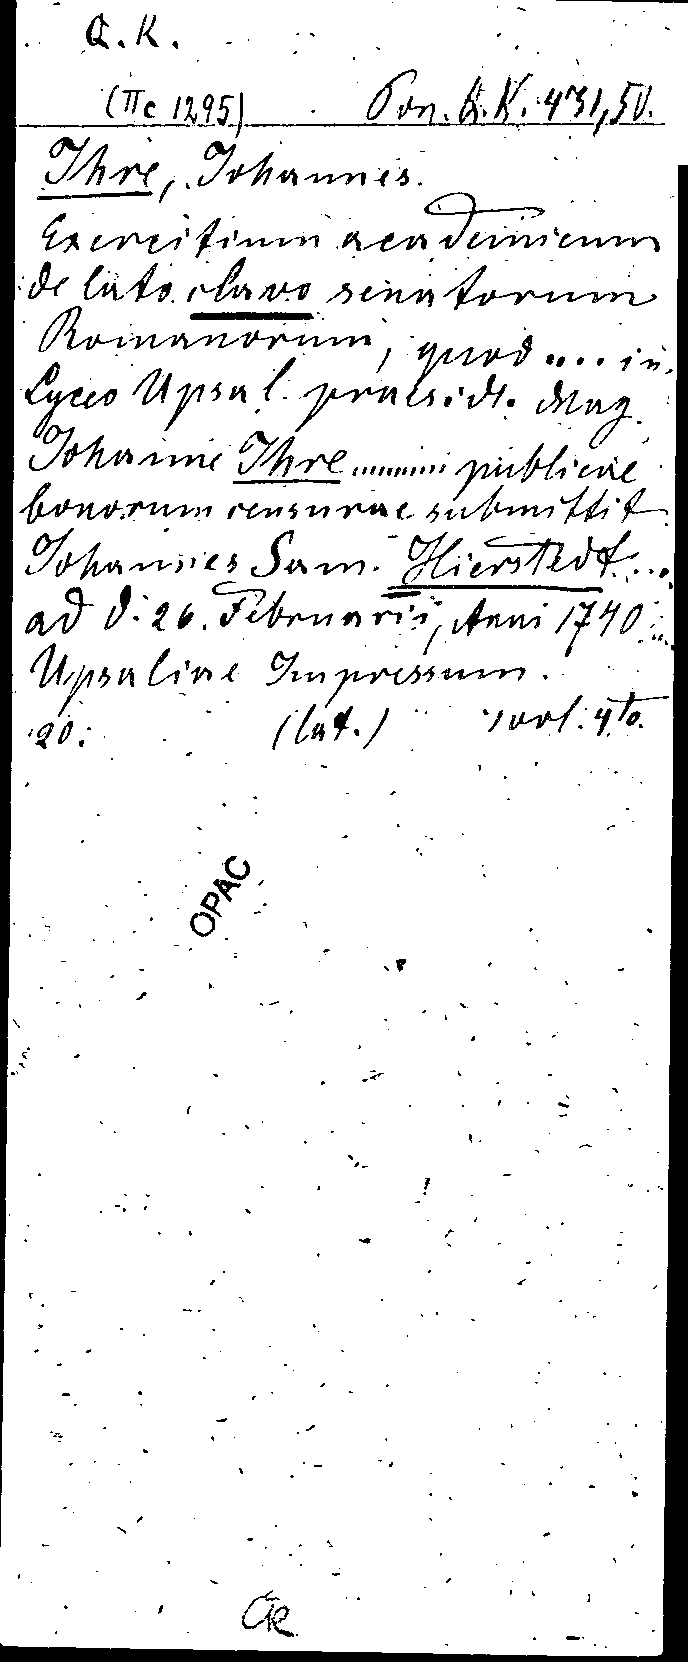 Q.K.
(IIc 1295) Pon. Q.K. 431,50.
Ihre, Johannes.
Exercitium academicum
de lato clavo senatorum
Romanorum, quod .... in
Lyceo Upsal. praeside Mag.
Johanne Ihre ......... publicae
bonorum censurae submittit
Johannes Sam. Hierstedt ....
ad d. 26. Februarii, Anni 1740 ...
Upsaliae Impressum.
20. (lat.) 1 vol. 4to.
OPAC